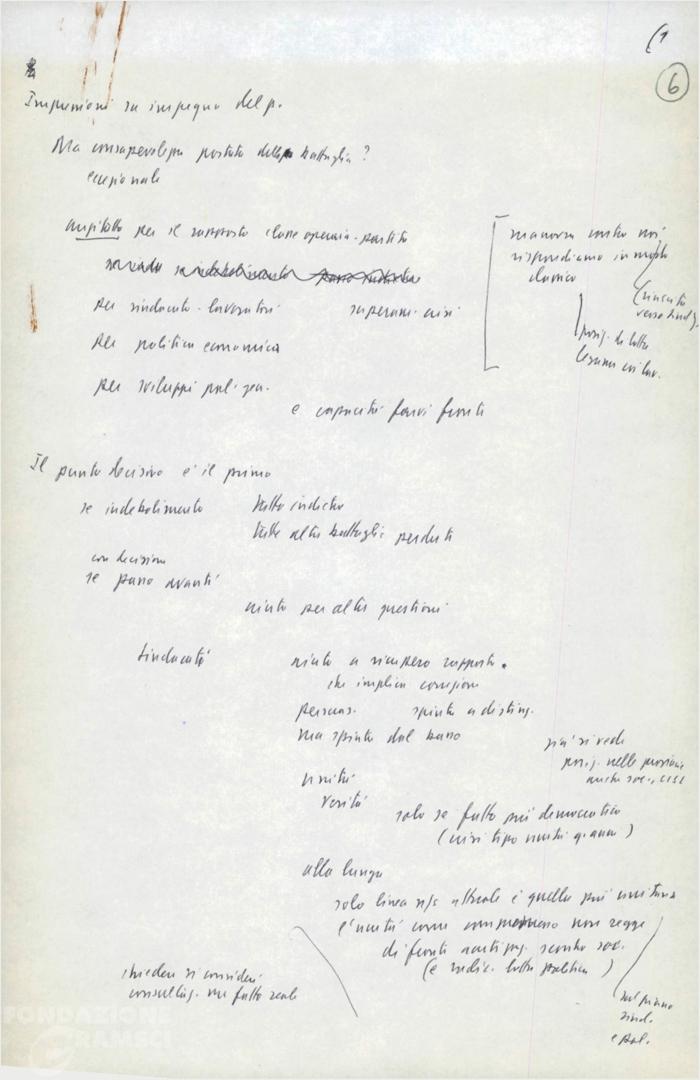 (1
6
Impressioni su impegno del p.
Ma consapevolezza portata della battaglia?
eccezionale
anzitutto per il rapporto classe operaia-partito
se indebolimento
per sindacato-lavoratori superam. crisi
per politica economica
per sviluppi pol. gen.
e capacità farvi fronte
manovra contro noi
rispondiamo in modo
classico
(riuscito
verso sind.)
posiz. di lotta
legami coi lav.
Il punto decisivo è il primo
se indebolimento tutto indietro
tutte altre battaglie perdute
con decisione
se passo avanti
aiuto per altre questioni
Sindacati aiuto a recupero rapporto.
che implica correzione
persuas. spinta a disting.
ma spinta dal basso
già si vede
posiz. nelle provincie
anche soc., CISL
unità
verità
solo se fatto più democratico
(crisi tipo unità q. anni)
alla lunga
solo linea attuale è quella più unitaria
l'unità come compromesso non regge
di fronte scontro soc.
(e radic. lotta politica)
sul piano
sind.
e pol.
chiedere si consideri
consulting. un fatto reale
FONDAZIONE
GRAMSCI